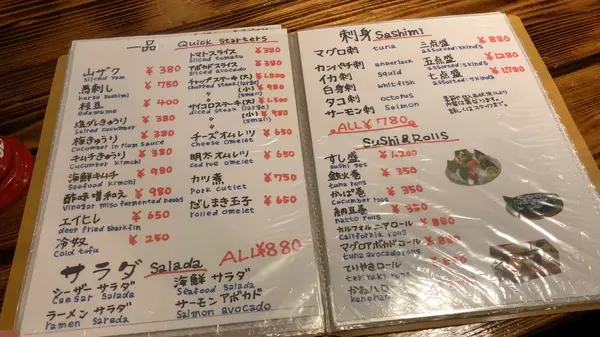 一品 Quick Starters
山ザク ¥380
sliced yam
馬刺し ¥750
horse sashimi
枝豆 ¥400
edamame
塩ダレきゅうり ¥380
salted cucumber
梅きゅうり ¥380
cucumber in Plum Sauce
キムチきゅうり ¥380
cucumber kimchi
海鮮キムチ ¥980
seafood kimchi
酢味噌和え ¥980
vinegar miso fermented beans
エイヒレ ¥650
deep fried sharkfin
冷奴 ¥250
Cold tofu
トマトスライス ¥380
sliced tomato
アボカドスライス ¥380
sliced avocado
チャップステーキ(大) ¥1,500
chopped steak (large)
〃 (小) ¥980
(small)
サイコロステーキ(大) ¥1,500
diced steak (large)
〃 (小) ¥980
(small)
チーズオムレツ ¥650
cheese omelet
明太オムレツ ¥650
cod roe omelet
カツ煮 ¥750
Pork cutlet
だしまき玉子 ¥650
rolled omelet
サラダ Salada ALL¥880
シーザーサラダ
Caesar Salada
ラーメンサラダ
ramen Sarada
海鮮サラダ
Seafood Salada
サーモンアボカド
Salmon avocado
刺身 Sashimi
マグロ刺 tuna
カンパチ刺 amberjack
イカ刺 squid
白身刺 whitfish
タコ刺 octopus
サーモン刺 Salmon
ALL ¥780
三点盛 ¥880
assorted 3kinds
五点盛 ¥1280
assorted 5kinds
七点盛 ¥1780
assorted 7kinds
Sushi&Rolls
すし盛 ¥1,200
sushi set
鉄火巻 ¥350
tuna rolls
かっぱ巻 ¥350
cucumber rolls
納豆巻 ¥350
natto rolls
カルフォルニアロール
california rolls
マグロアボカドロール
tuna avocado rolls
てりやきロール
teriyaki rolls